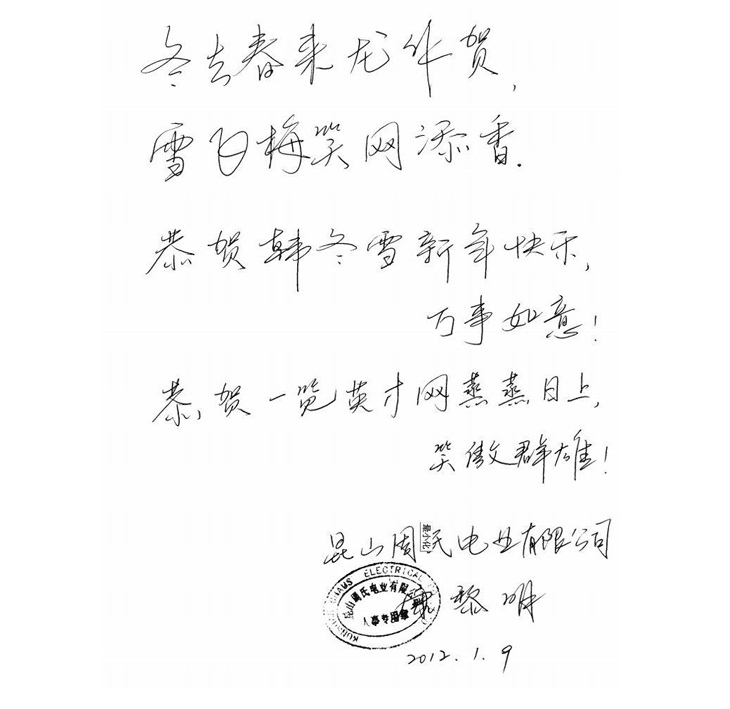 冬去春来龙年贺,
雪白梅笑网添香.
恭贺韩冬雪新年快乐,
万事如意!
恭贺一览英才网蒸蒸日上,
笑傲群雄!
昆山周氏电业有限公司
最小化
ELECTRICAL
昆山周氏电业有限
人事专用章
黎明
2012.1.9